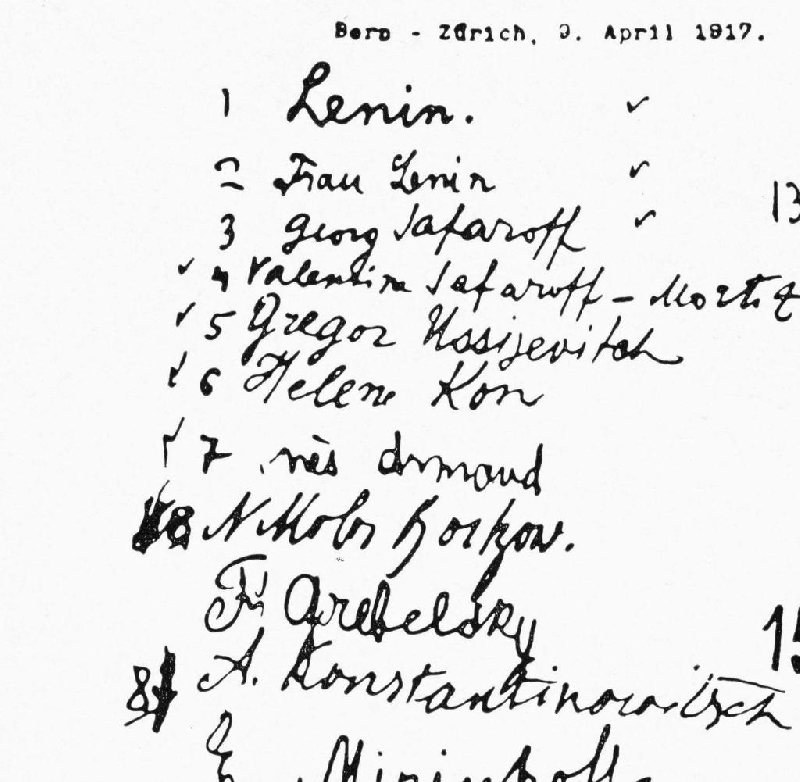 Bern - Zürich, 9. April 1917.
1 Lenin.
2 Frau Lenin
3 Georg Safaroff
13
4 Valentina Safaroff - Mortotschkin
5 Gregor Ussijevitch
6 Helene Kon
7 Inès Armand
8 N. Boitzow.
F. Grebelsky
15
A. Konstantinowitsch
E. Mirinhoff